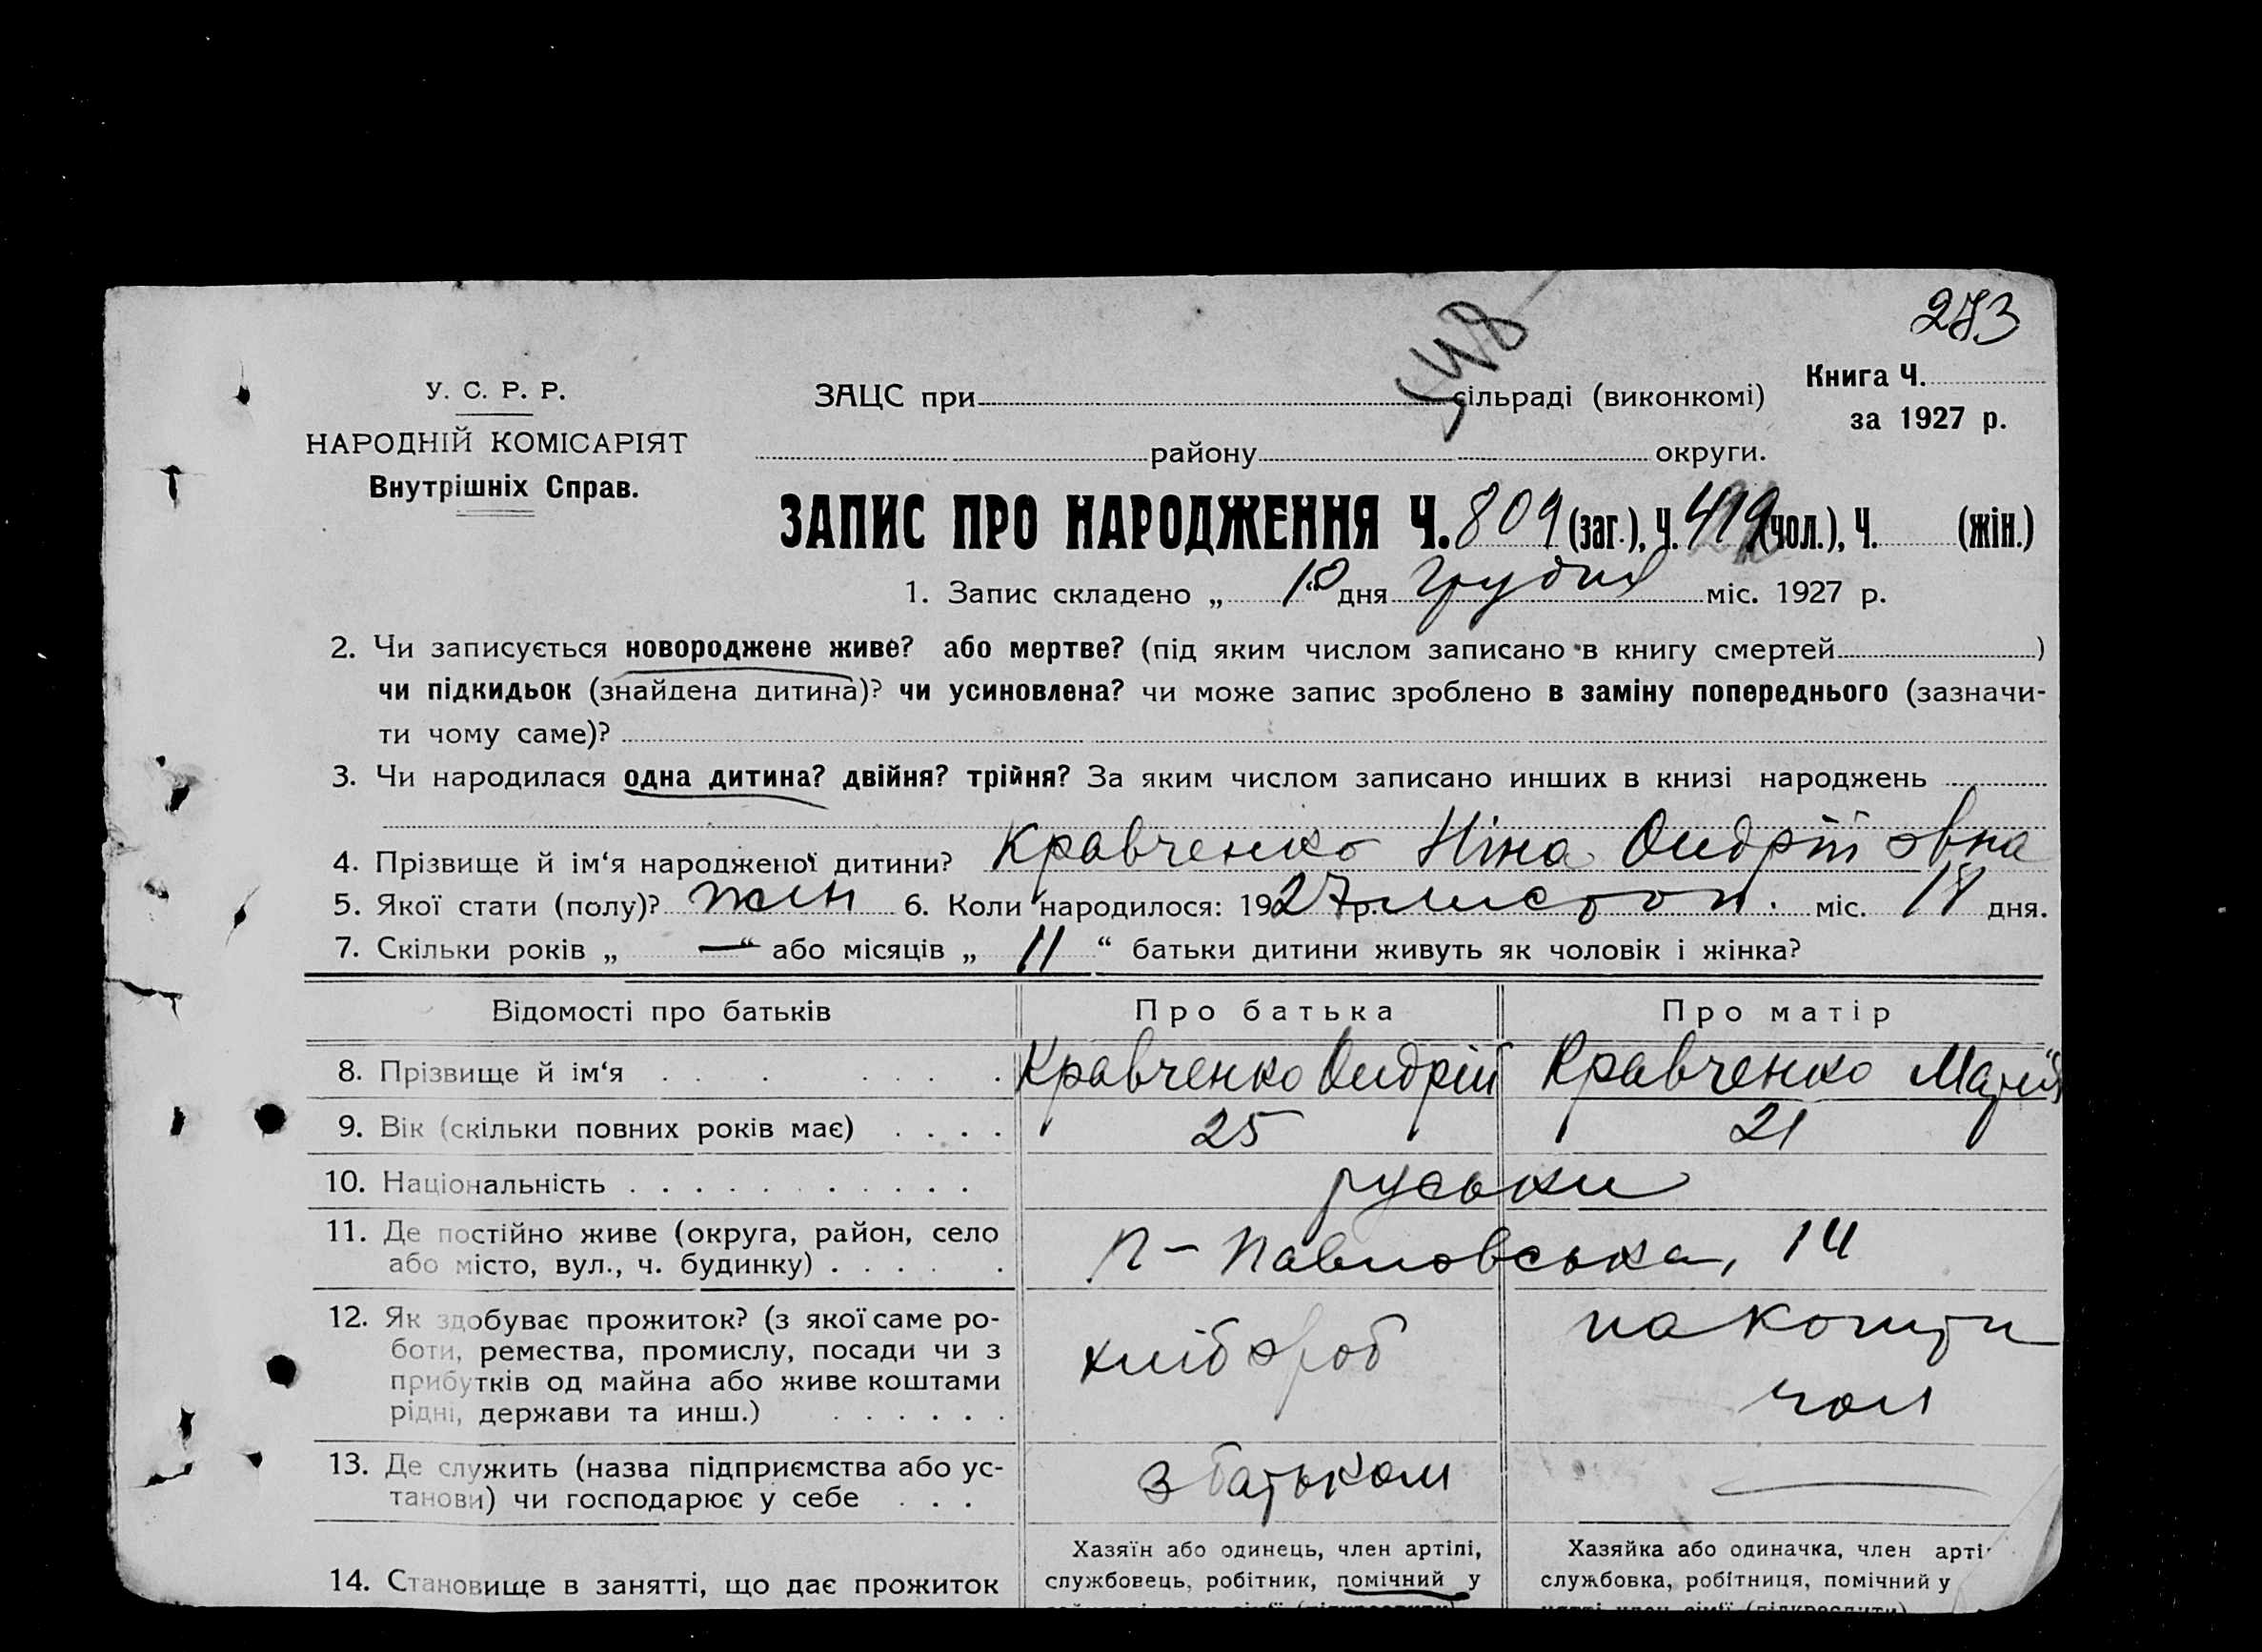 273
548
У. С. Р. Р.
НАРОДНІЙ КОМІСАРІЯТ
Внутрішніх Справ.
ЗАЦС при сільраді (виконкомі)
району округи.
Книга Ч.
за 1927 р.
ЗАПИС ПРО НАРОДЖЕННЯ Ч. 809 (заг.), Ч. 419 (чол.), Ч. (жін.)
1. Запис складено „ 10 “ дня грудня міс. 1927 р.
2. Чи записується новороджене живе? або мертве? (під яким числом записано в книгу смертей )
чи підкидьок (знайдена дитина)? чи усиновлена? чи може запис зроблено в заміну попереднього (зазначи-
ти чому саме)?
3. Чи народилася одна дитина? двійня? трійня? За яким числом записано инших в книзі народжень
4. Прізвище й ім‘я народженої дитини? Кравченко Ніна Ондріївна
5. Якої стати (полу)? жін 6. Коли народилося: 1927 р. листоп. міс. 18 дня.
7. Скільки років „ — “ або місяців „ 11 “ батьки дитини живуть як чоловік і жінка?
Відомості про батьків Про батька Про матір
8. Прізвище й ім‘я . . . . . . . Кравченко Ондрій Кравченко Марія
9. Вік (скільки повних років має) . . . . 25 21
10. Національність . . . . . . . . . . . руськи
11. Де постійно живе (округа, район, село
або місто, вул., ч. будинку) . . . . . . П- Павловська, 14
12. Як здобуває прожиток? (з якої саме ро-
боти, ремества, промислу, посади чи з
прибутків од майна або живе коштами
рідні, держави та инш.) . . . . . .
хлібороб
на кошти
чол
13. Де служить (назва підприємства або ус-
танови) чи господарює у себе . . .
з батьком —
14. Становище в занятті, що дає прожиток
Хазяїн або одинець, член артілі,
службовець, робітник, помічний у
Хазяйка або одиначка, член арті
службовка, робітниця, помічний у